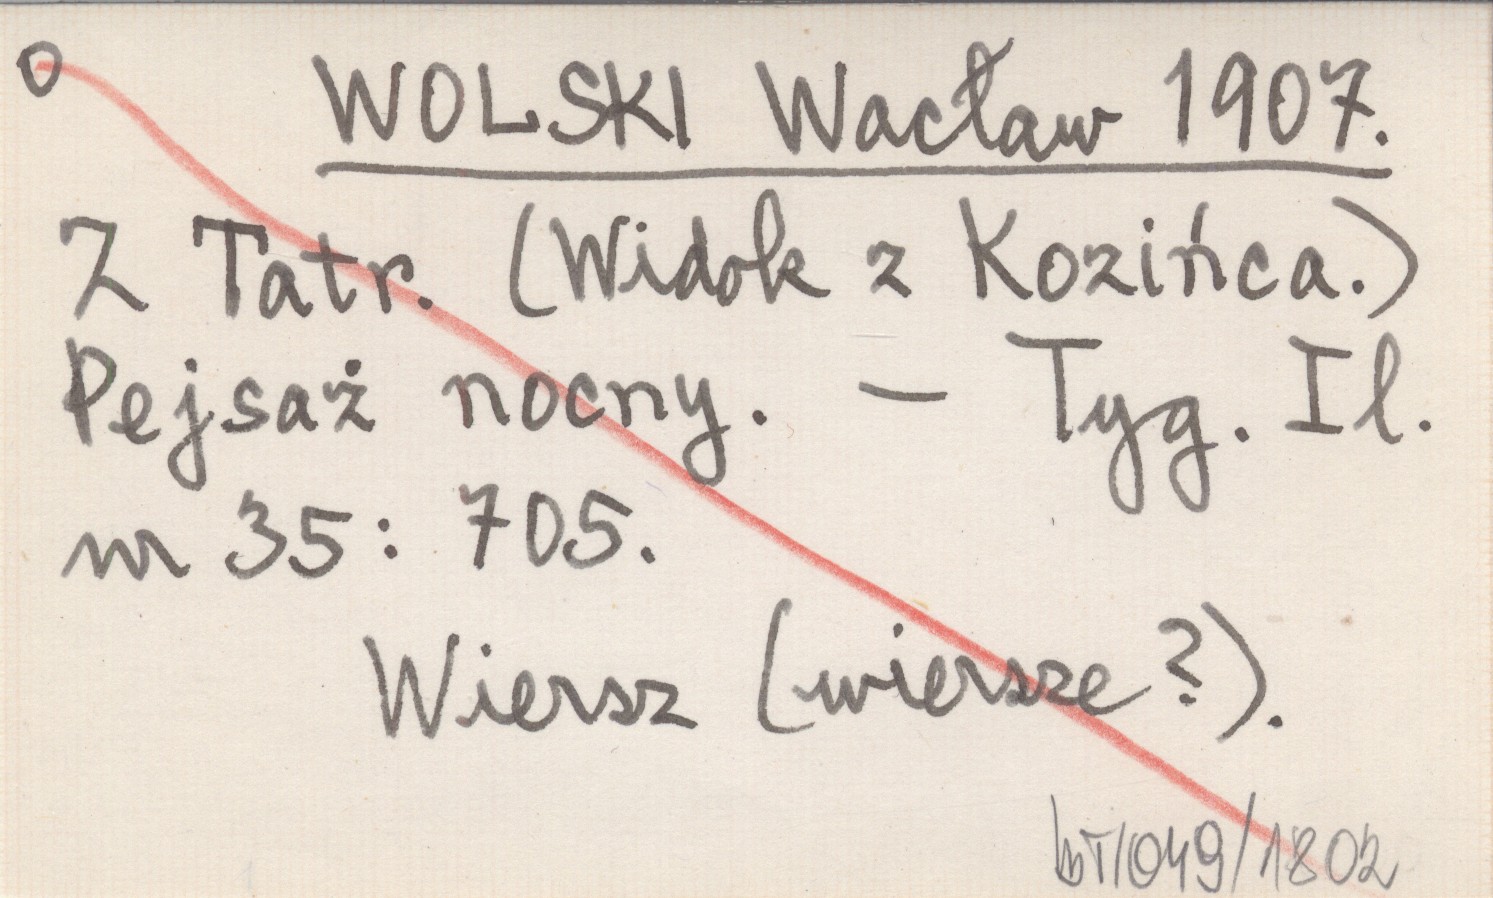 O
WOLSKI Wacław 1907.
Z Tatr. (Widok z Kozińca.)
Pejsaż nocny. — Tyg. Il.
nr 35: 705.
Wiersz (wiersze?).
bT/049/1802